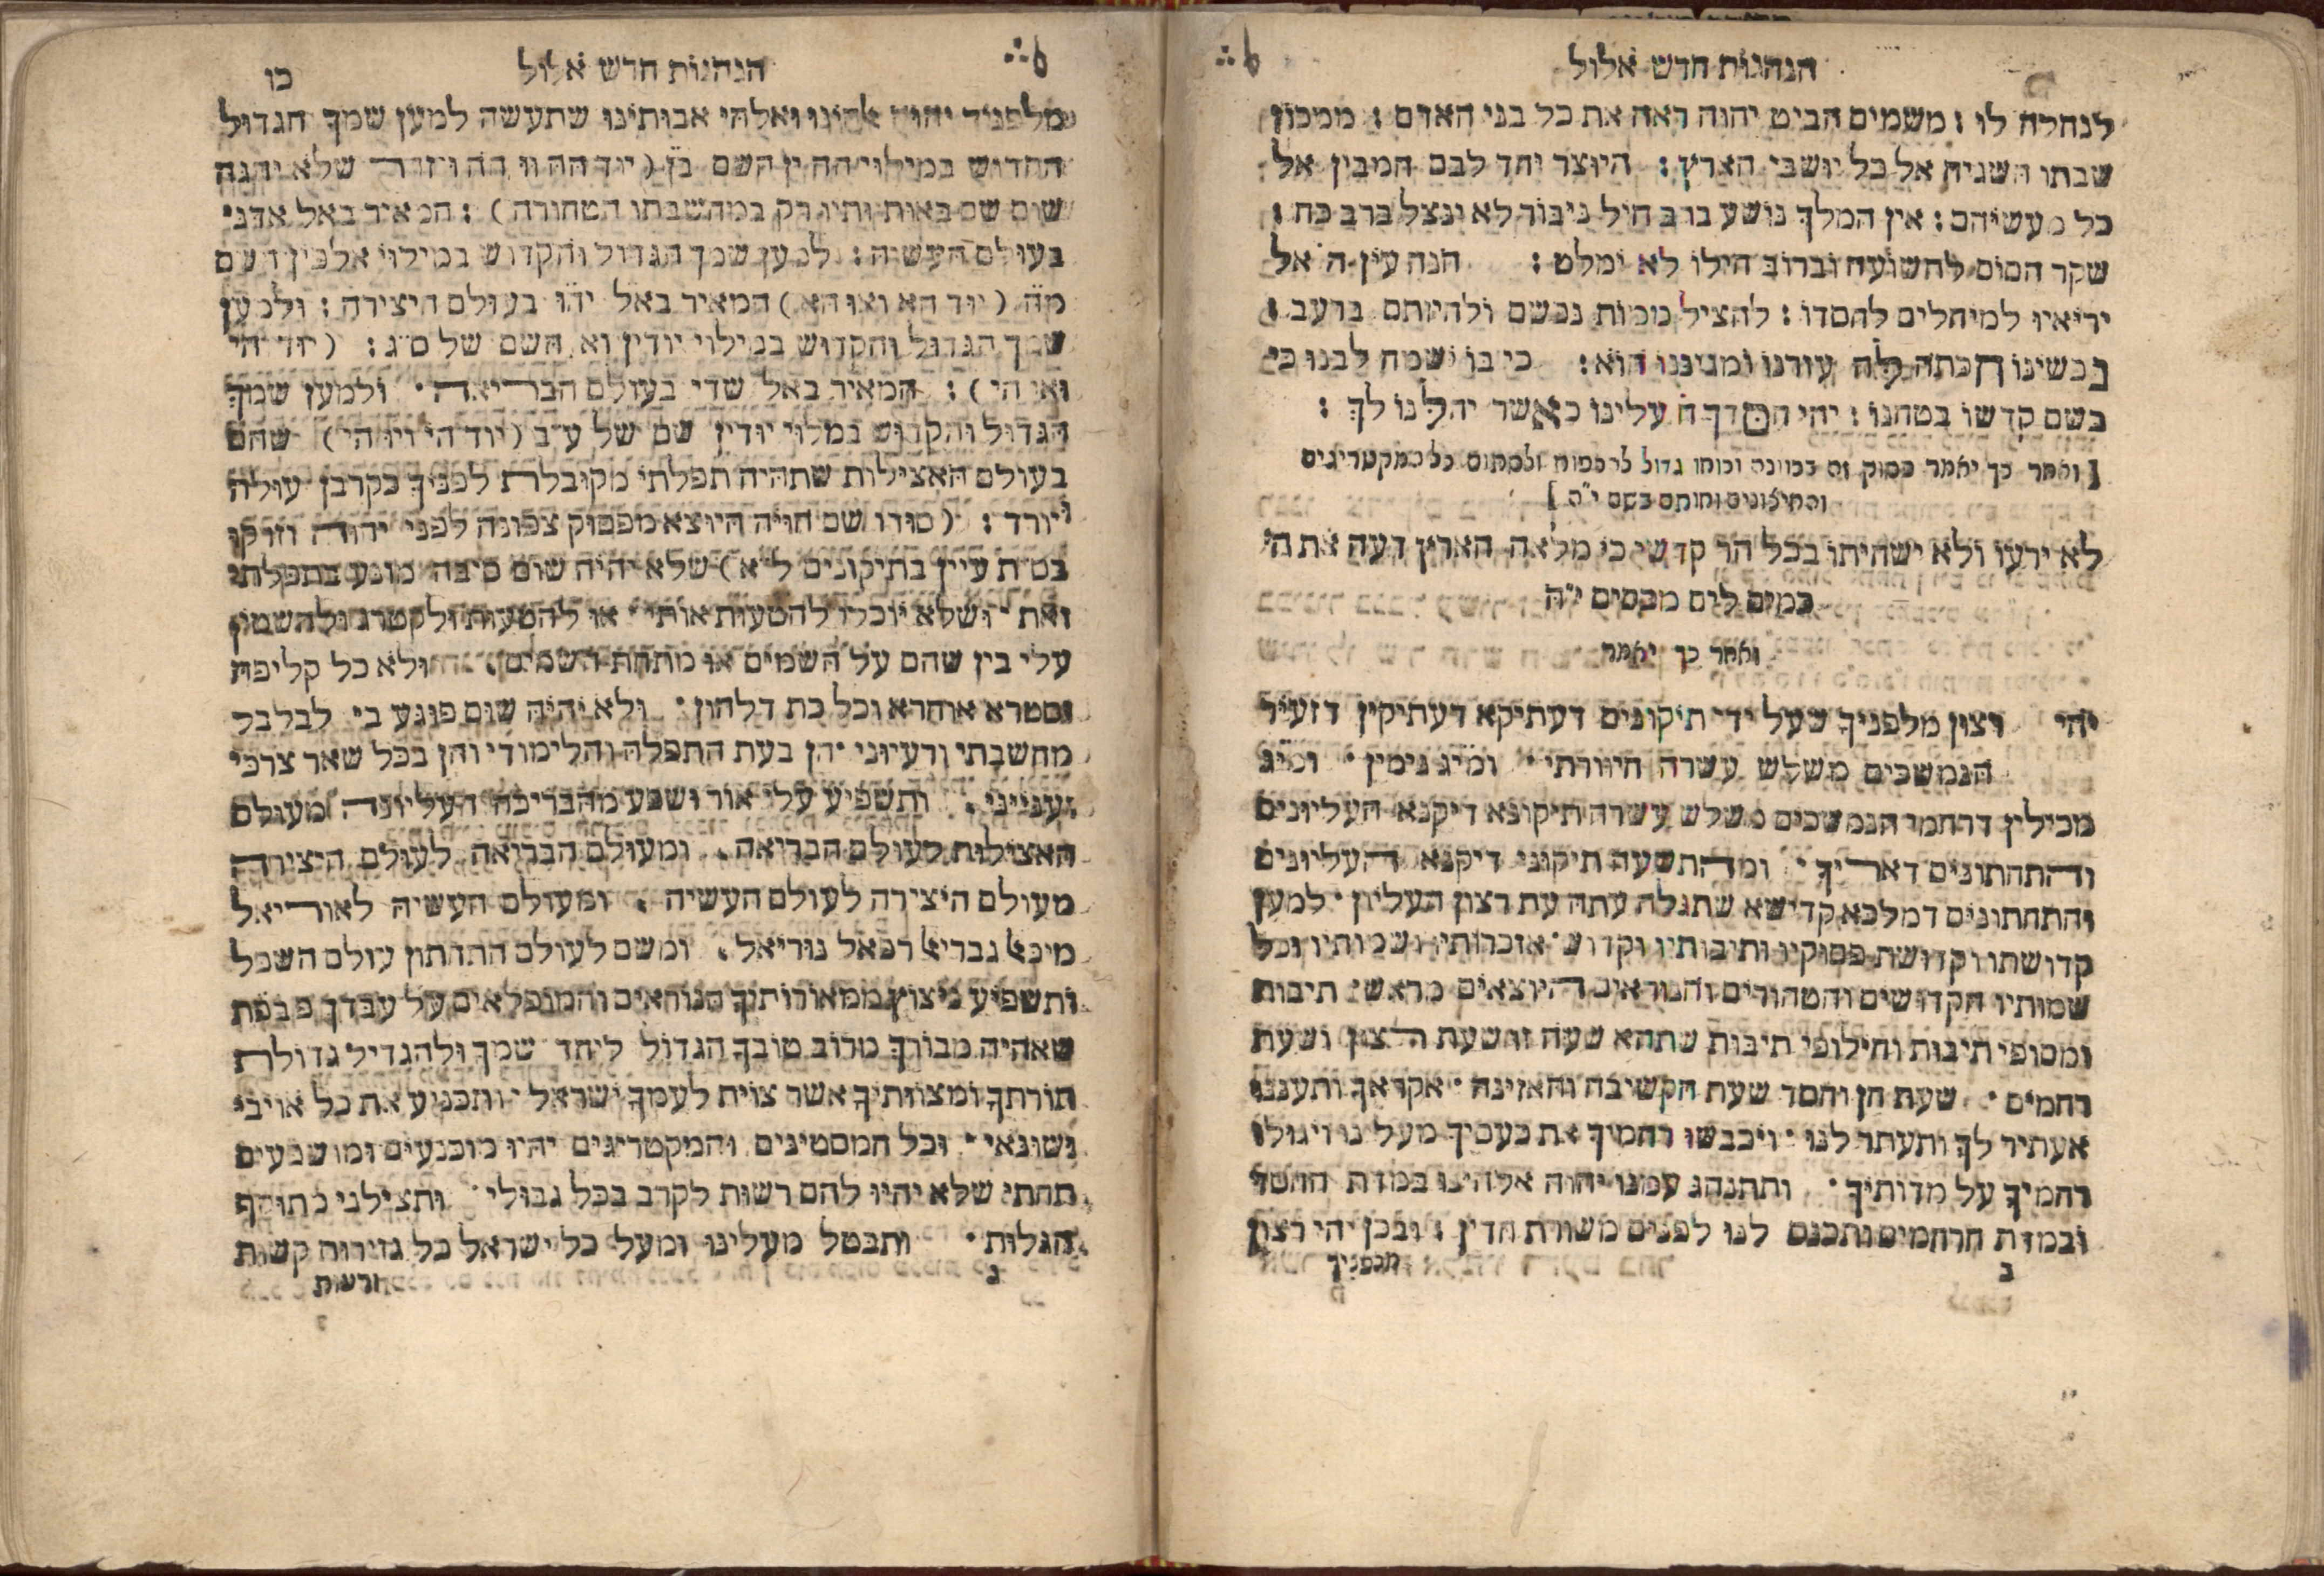 הנהגות חדש אלול
לנחלה לו : משמים הביט יהוה ראה את כל בני האדם : ממכון
שבתו השגיח אל כל יושבי הארץ : היוצר יחד לבם המבין אל
כל מעשיהם : אין המלך נושע ברב חיל גיבור לא ינצל ברב כח :
שקר הסוס לתשועה וברוב חילו לא ימלט : הנה עין ה' אל
יריאיו למיחלים לחסדו : להציל ממות נפשם ולחיותם ברעב :
נפשינו חכתה לה עזרנו ומגיננו הוא : כי בו ישמח לבנו כי
בשם קדשו בטחנו : יהי חסדך ה' עלינו כאשר יחלנו לך :
[ ואחר כך יאמר פסוק זה בכוונה וכוחו גדול לרפפות ולסתום כל המקטריגים
והחיצונים וחותם בשם י"ה ]
לא ירעו ולא ישחיתו בכל הר קדשי כי מלאה הארץ דעה את ה'
כמים לים מכסים י"ה
ואחר כך יאמר
יהי רצון מלפניך שעל ידי תיקונים דעתיקא דעתיקין דזעיר
הנמשכים משלש עשרה חיוורתי • ומי"ג נימין • ומי"ג
מכילין דרחמי הנמשכים משלש עשרה תיקונא דיקנא העליונים
והתחתונים דאריך • ומהתשעה תיקוני דיקנא העליונים
והתחתונים דמלכא קדישא שתגלה עתה עת רצון העליון • למען
קדושתו וקדושת פסוקיו ותיבותיו וקדוש אזכרותיו ושמותיו וכל
שמותיו הקדושים והטהורים והנוראים היוצאים מראשי תיבות
ומסופי תיבות וחילופי תיבות שתהא שעה זו שעת הצון ושעת
רחמים • שעת חן וחסד שעת הקשיבה והאזינה • אקראך ותעננו
אעתיר לך ותעתר לנו • ויכבשו רחמיך את כעסיך מעלינו ויגולו
רחמיך על מדותיך • ותתנהג עמנו יהוה אלהינו במדת החסד
ובמדת הרחמים ותכנס לנו לפנים משורת הדין : ובכן יהי רצון
ב מלפניך
הנהגות חדש אלול כו
מלפניך יהוה אלהינו ואלהי אבותינו שתעשה למען שמך הגדול
הקדוש במילוי ההין השם ב"ן ( יוד הה וו הה ) שלא יהגה
שום שם באותותיו רק במחשבתו הטהורה ) : המאיר באל אדני
בעולם העשיה : למען שמך הגדול והקדוש במילוי אלפין השם
מ"ה ( יוד הא ואו הא ) המאיר באל יהו בעולם היצירה : ולמען
שמך הגדול והקדוש במילוי יודין וא השם של ס"ג : ( יוד הי
ואו הי ) : המאיר באל שדי בעולם הבריאה • ולמען שמך
הגדול והקדוש במלוי יודין שם של ע"ב ( יוד הי ויו הי ) שהם
בעולם האצילות שתהיה תפלתי מקובלת לפניך כקרבן עולה
ויורד : ( סודו שם חויה היוצא מפסוק צפונה לפני יהוה וזרקו
בס"ת עיין בתיקונים ל"א ) שלא יהיה שום סיבה מונע בתפלתי
זאת • ושלא יוכלו להטעות אותי • או להטעות ולקטרג ולהשטין
עלי בין שהם על השמים או מתחת השמים . ולא כל קליפה
וסטרא אוחרא וכל כת דלהון • ולא יהיה שום פוגע בי לבלבל
מחשבתי ורעיוני הן בעת התפלה והלימודי והן בכל שאר צרכי
וענייני . ותשפיע עלי אור ושפע מהבריכה העליונה מעולם
האצילות לעולם הבריאה . ומעולם הבריאה לעולם היצירה
מעולם היצירה לעולם העשיה . ומעולם העשיה לאוריאל
מיכאל גבריאל רפאל נוריאל . ומשם לעולם התחתון עולם השפל
ותשפיע ניצוץ ממאורותיך הנוראים והמופלאים על עבדך פב"פ
שאהיה מבורך מרוב טובך הגדול ליחד שמך ולהגדיל גדולת
תורתך ומצוותיך אשר צוית לעמך ישראל • ותכניע את כל אויבי
ושונאי • וכל המסטינים והמקטריגים יהיו מוכנעים ומושפעים
תחתי שלא יהיו להם רשות לקרב בכל גבולי • ותצילני מתוקף
הגלות • ותבטל מעלינו ומעל כל ישראל כל גזירות קשות
ורעות